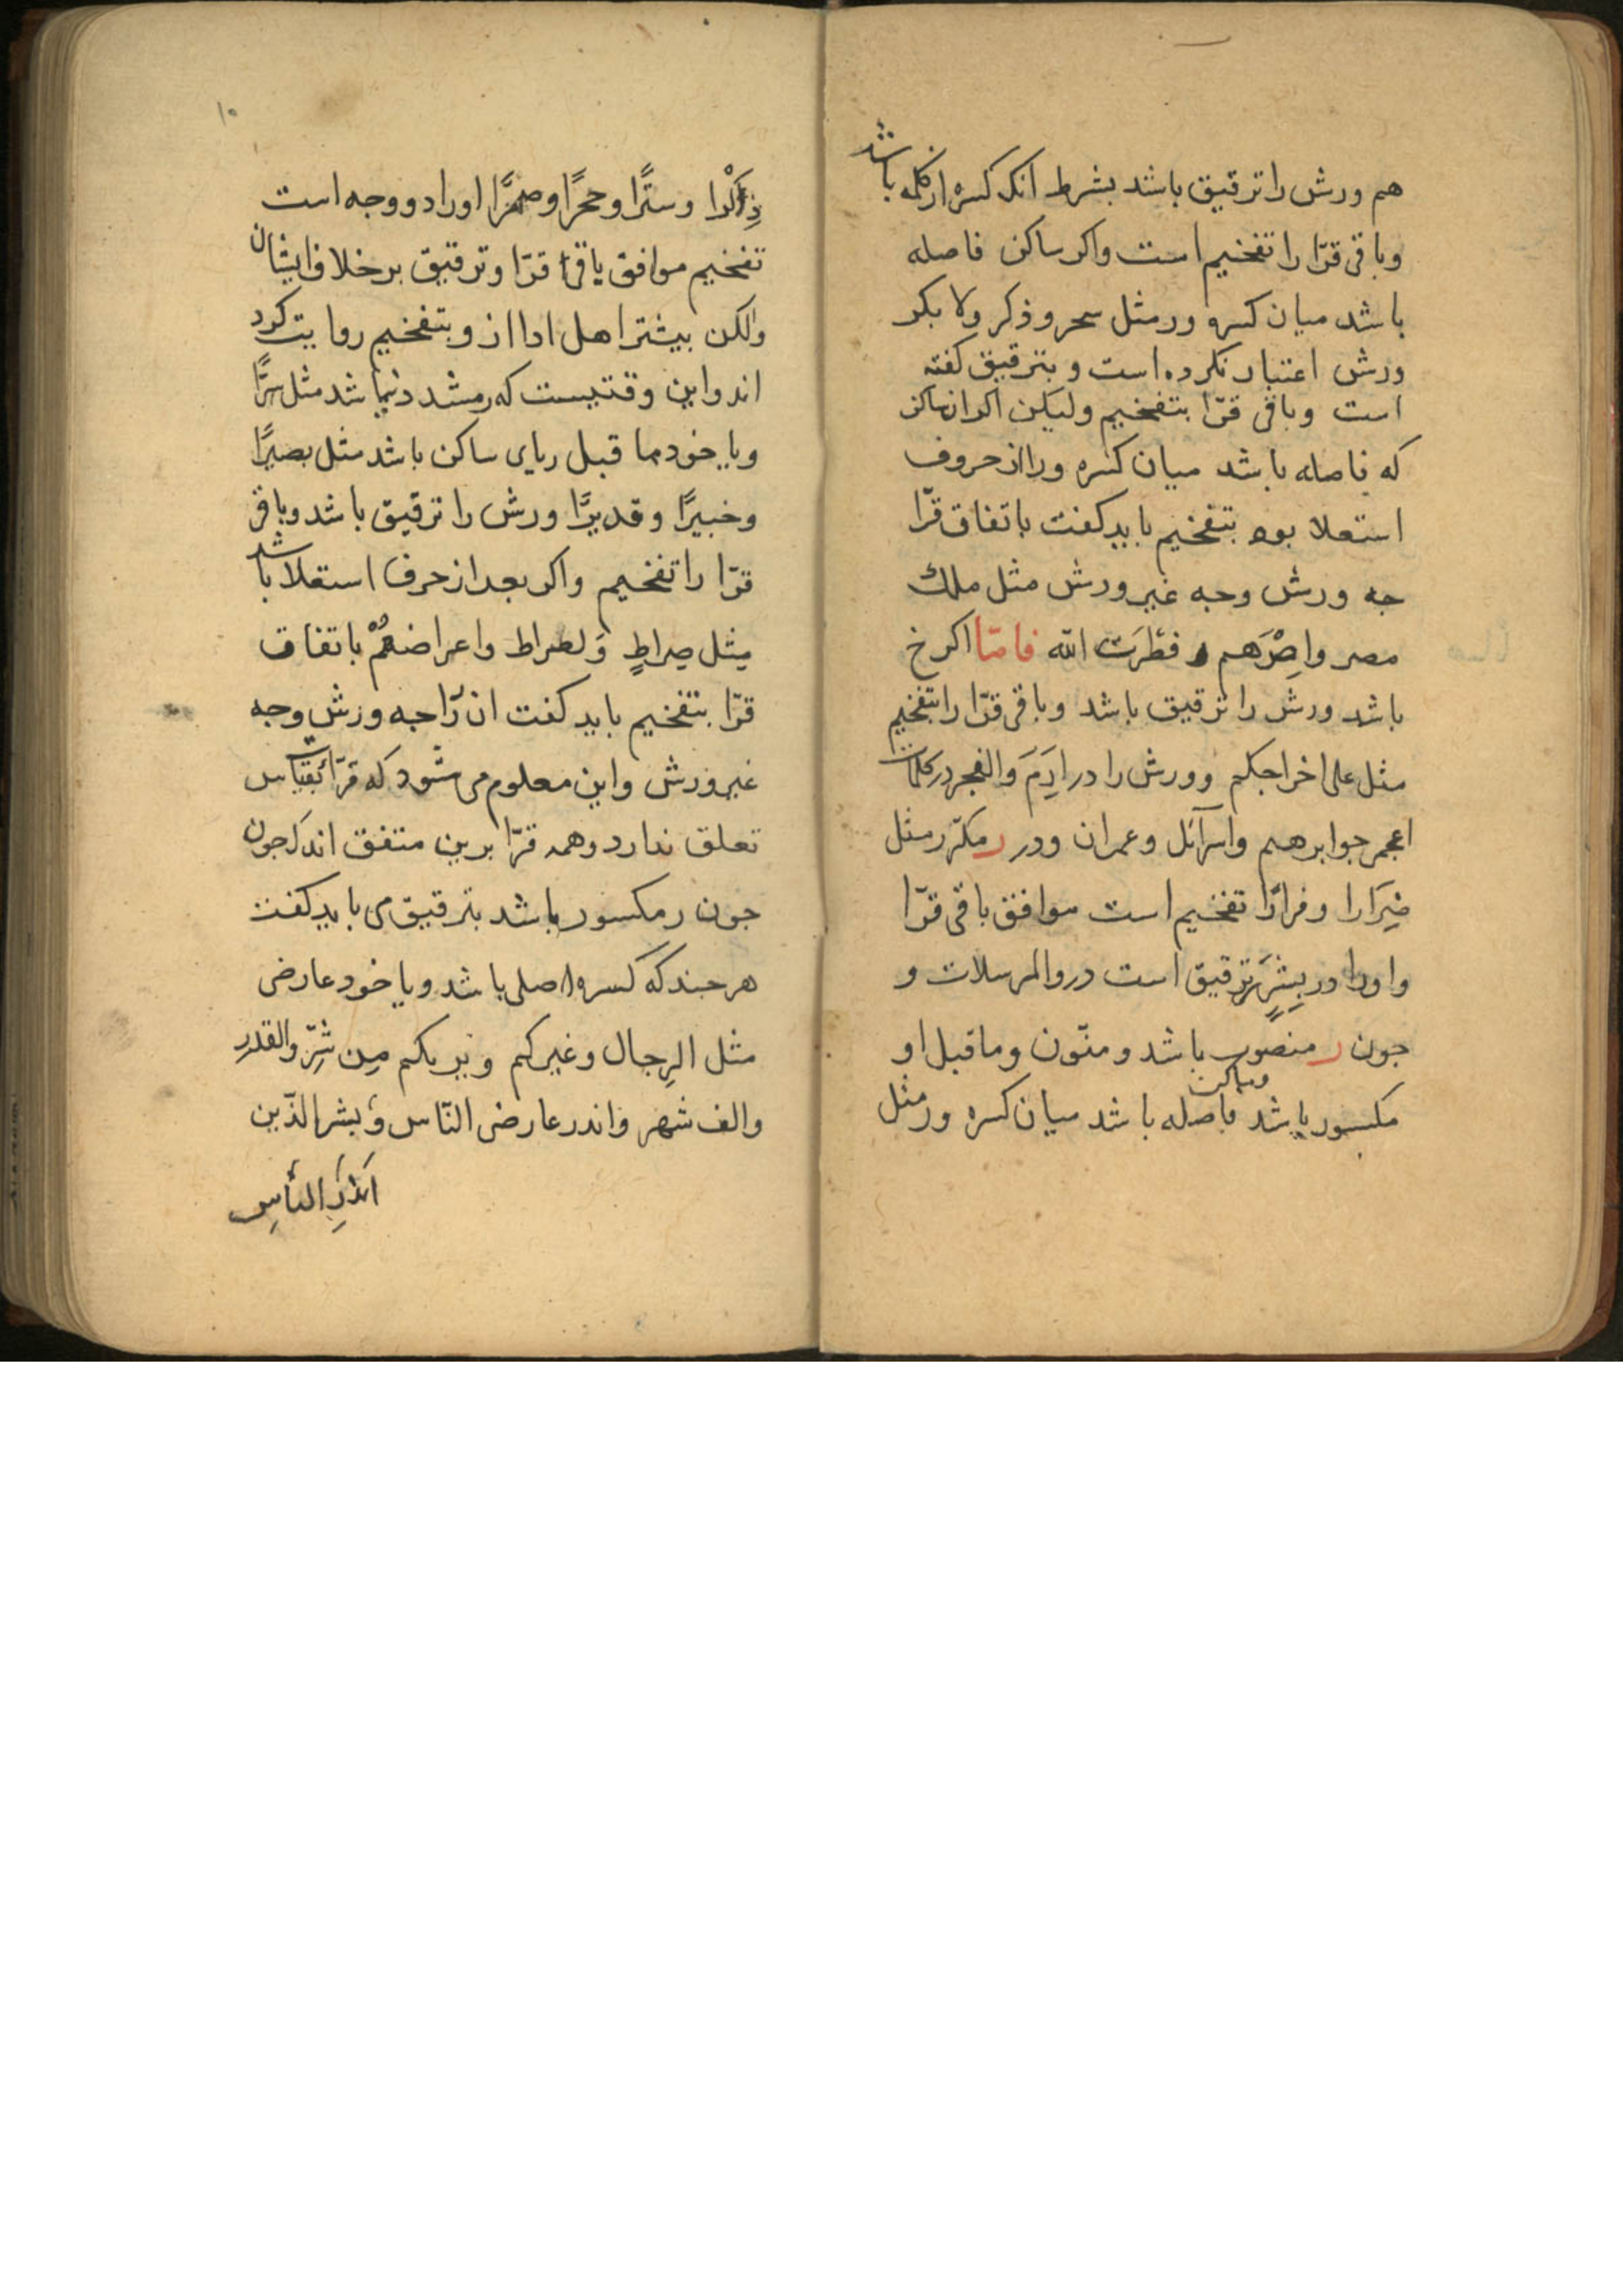 هم ورش را ترقیق باشد بشرط انک کسره از کلمه باشد
وباقی قرّا را تفخیم است واکر ساکن فاصله
باشد میان کسره ور مثل سحر و ذکر ولا بکر
ورش اعتبار نکرده است و بترقیق کفته
است وباقی قرّا بتفخیم ولیکن اکر ان ساکن
که فاصله باشد میان کسره ورا از حروف
استعلا بود بتفخیم باید کفت باتفاق قرّا
جه ورش وجه غیر ورش مثل ملک
مصر واِصْرَهم و فِطْرَت الله فامّا اکر خ
باشد ورش را ترقیق باشد وباقی قرّا را بتفخیم
مثل علی اخراجکم وورش را در اِرَمَ والفجر در کلمات
اعجمی جو ابرهیم واسرآئل وعمران ودر ر مکرّر مثل
ضِرَارا وفرارًا تفخیم است موافق باقی قرّا
واورا در بِشَرَرٍ ترقیق است در والمرسلات و
جون ر منصوب باشد ومنّون وماقبل او
مکسور باشد وساکن فاصله باشد میان کسره ور مثل
۱۰
ذِکْرًا وسترًا وحجرًا وصهرًا اورا دو وجه است
تفخیم موافق باقی قرّا وترقیق بر خلاف ایشان
ولکن بیشتر اهل ادا از و بتفخیم روایت کرد
اند واین وقتیست که ر مشدد نباشد مثل سرًّا
ویا خود ما قبل ر یای ساکن باشد مثل بصیرًا
وخبیرًا وقدیرًا ورش را ترقیق باشد وباقی
قرّا را تفخیم واکر بعد از حرف استعلا باشد
مثل صِراطٍ وَلصراط واعراضهُمْ باتفاق
قرّا بتفخیم باید کفت ان رَا جه ورش وجه
غیر ورش واین معلوم می شود که قرّائت بقیاس
تعلق ندارد وهمه قرّا برین متفق اند که جون
جون ر مکسور باشد بترقیق می باید کفت
هر جند که کسره اصلی باشد ویا خود عارضی
مثل الرِجال وغیرکم ویریکم مِن شرِّ والقدرِ
والف شهر واندر عارضی النّاس وَبشر الّذین
انذرِ الناسِ